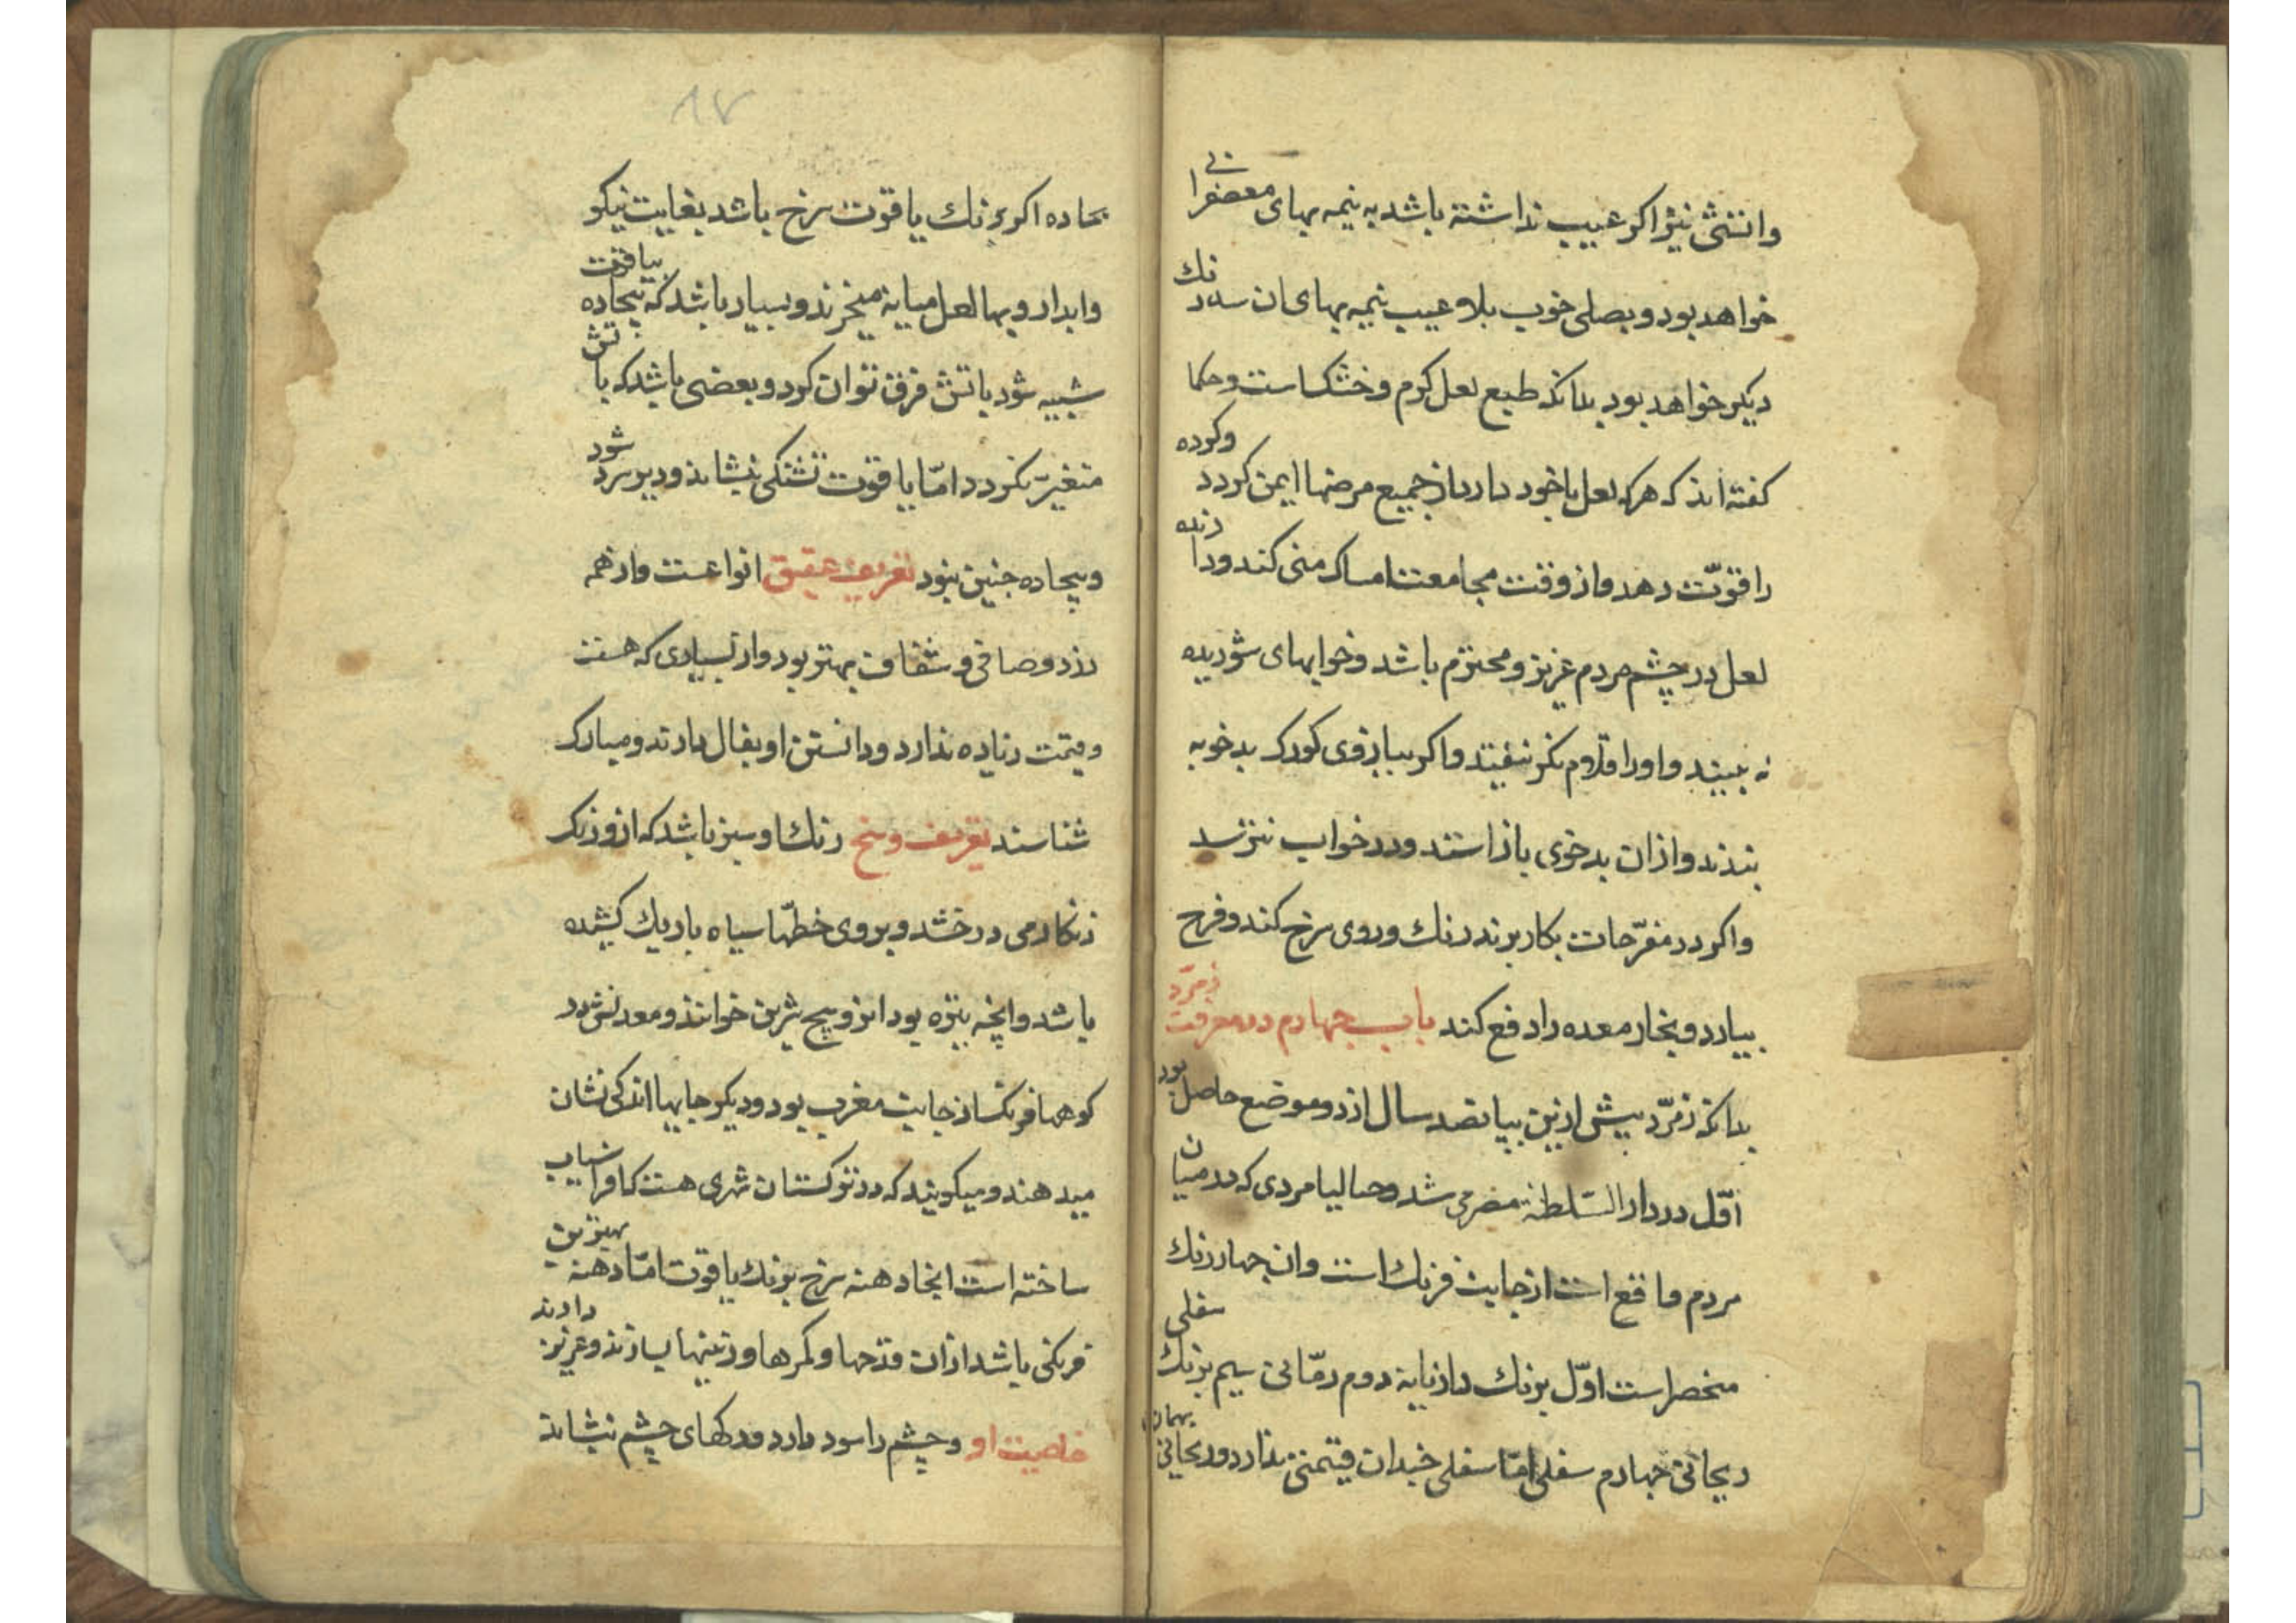 واتشی نیز اکر عیب نداشته باشد به نیمه بهای معصفرانی
خواهد بود و بصلی خوب بلا عیب نیمه بهای ان سه رنك
دیکر خواهد بود بدانکه طبع لعل کرم و خشکست و حکما
کفته اند که هرکه لعل با خود دارد از جمیع مرضها ایمن کردد و کرده
را قوّت دهد و از وقت مجامعت امساک منی کند و دارنده
لعل در چشم مردم عزیز و محترم باشد و خوابهای شوریده
نه بیند و اورا قلزم نکر نیفتد و اکر ببازوی کودک بدخو به
بندند و ازان بدخوی باز استد و در خواب نترسد
و اکر در مفرّحات بکار برند رنك و روی سرخ کند و فرح
بیارد و بخار معده را دفع کند باب چهارم در معرفت زمرّد
بدانکه زمرّد پیش ازین بپانصد سال از دو موضع حاصل بود
اوّل در دار السّلطنه مصر می شد و حالیا مردی که در میان
مردم واقع است از جانب فرنك است وان چهار رنك
منحصر است اوّل برنك دارنابه دوم رمّانی سیم برنك سفلی
ریحانی چهارم سفلی امّا سفلی چندان قیمتی ندارد و ریحانی بهمان
۸۷
بجاده اکر برنك یاقوت سرخ باشد بغایت نیکو
وابدار و بهاء لعل میانه میخرند و بسیار باشد که بیجاده بیاقوت
شبیه شود باتش فرق توان کرد و بعضی باشد که باتش
متغیّر نکردد امّا یاقوت تشنکی بنشاند و دیر سرد شود
و بیجاده چنین نبود تعریف عقیق انواعست واز همه
زرد و صافی و شفاف بهتر بود واز بسیاری که هست
قیمت زیاده ندارد و داشتن او بفال دارند و مبارک
شناسند تعریف وسخ رنك او سبز باشد که ازو رنک
زنکار می درخشد و بروی خطّها سیاه باریك کشیده
باشد وانچه تیزه بود انرو بیج شرین خوانند و معدنش در
کوهها فرنکست از جانب مغرب بود و دیکر جایها اندکی نشان
میدهند و میکویند که در ترکستان شهری هست که افراسیاب
ساخته است انجا دهنه سرخ برنك یاقوت امّا دهنه بهترین
فرنکی باشد ازان قدحها و کمرها و زینها بسازند و عزیز دارند
خاصیت او و چشم را سود دارد و درکهای چشم بنشاند